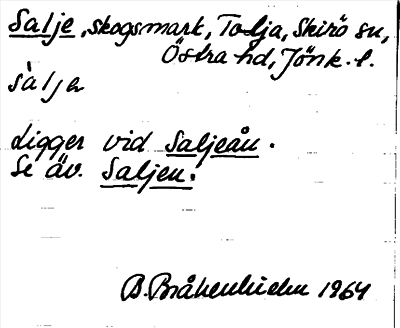 Salje, skogsmark, Tolja, Skirö sn,
Östra hd, Jönk. l.
sàljɘ
Ligger vid Saljeån.
Se äv. Saljen.
B. Bråkenhielm 1964